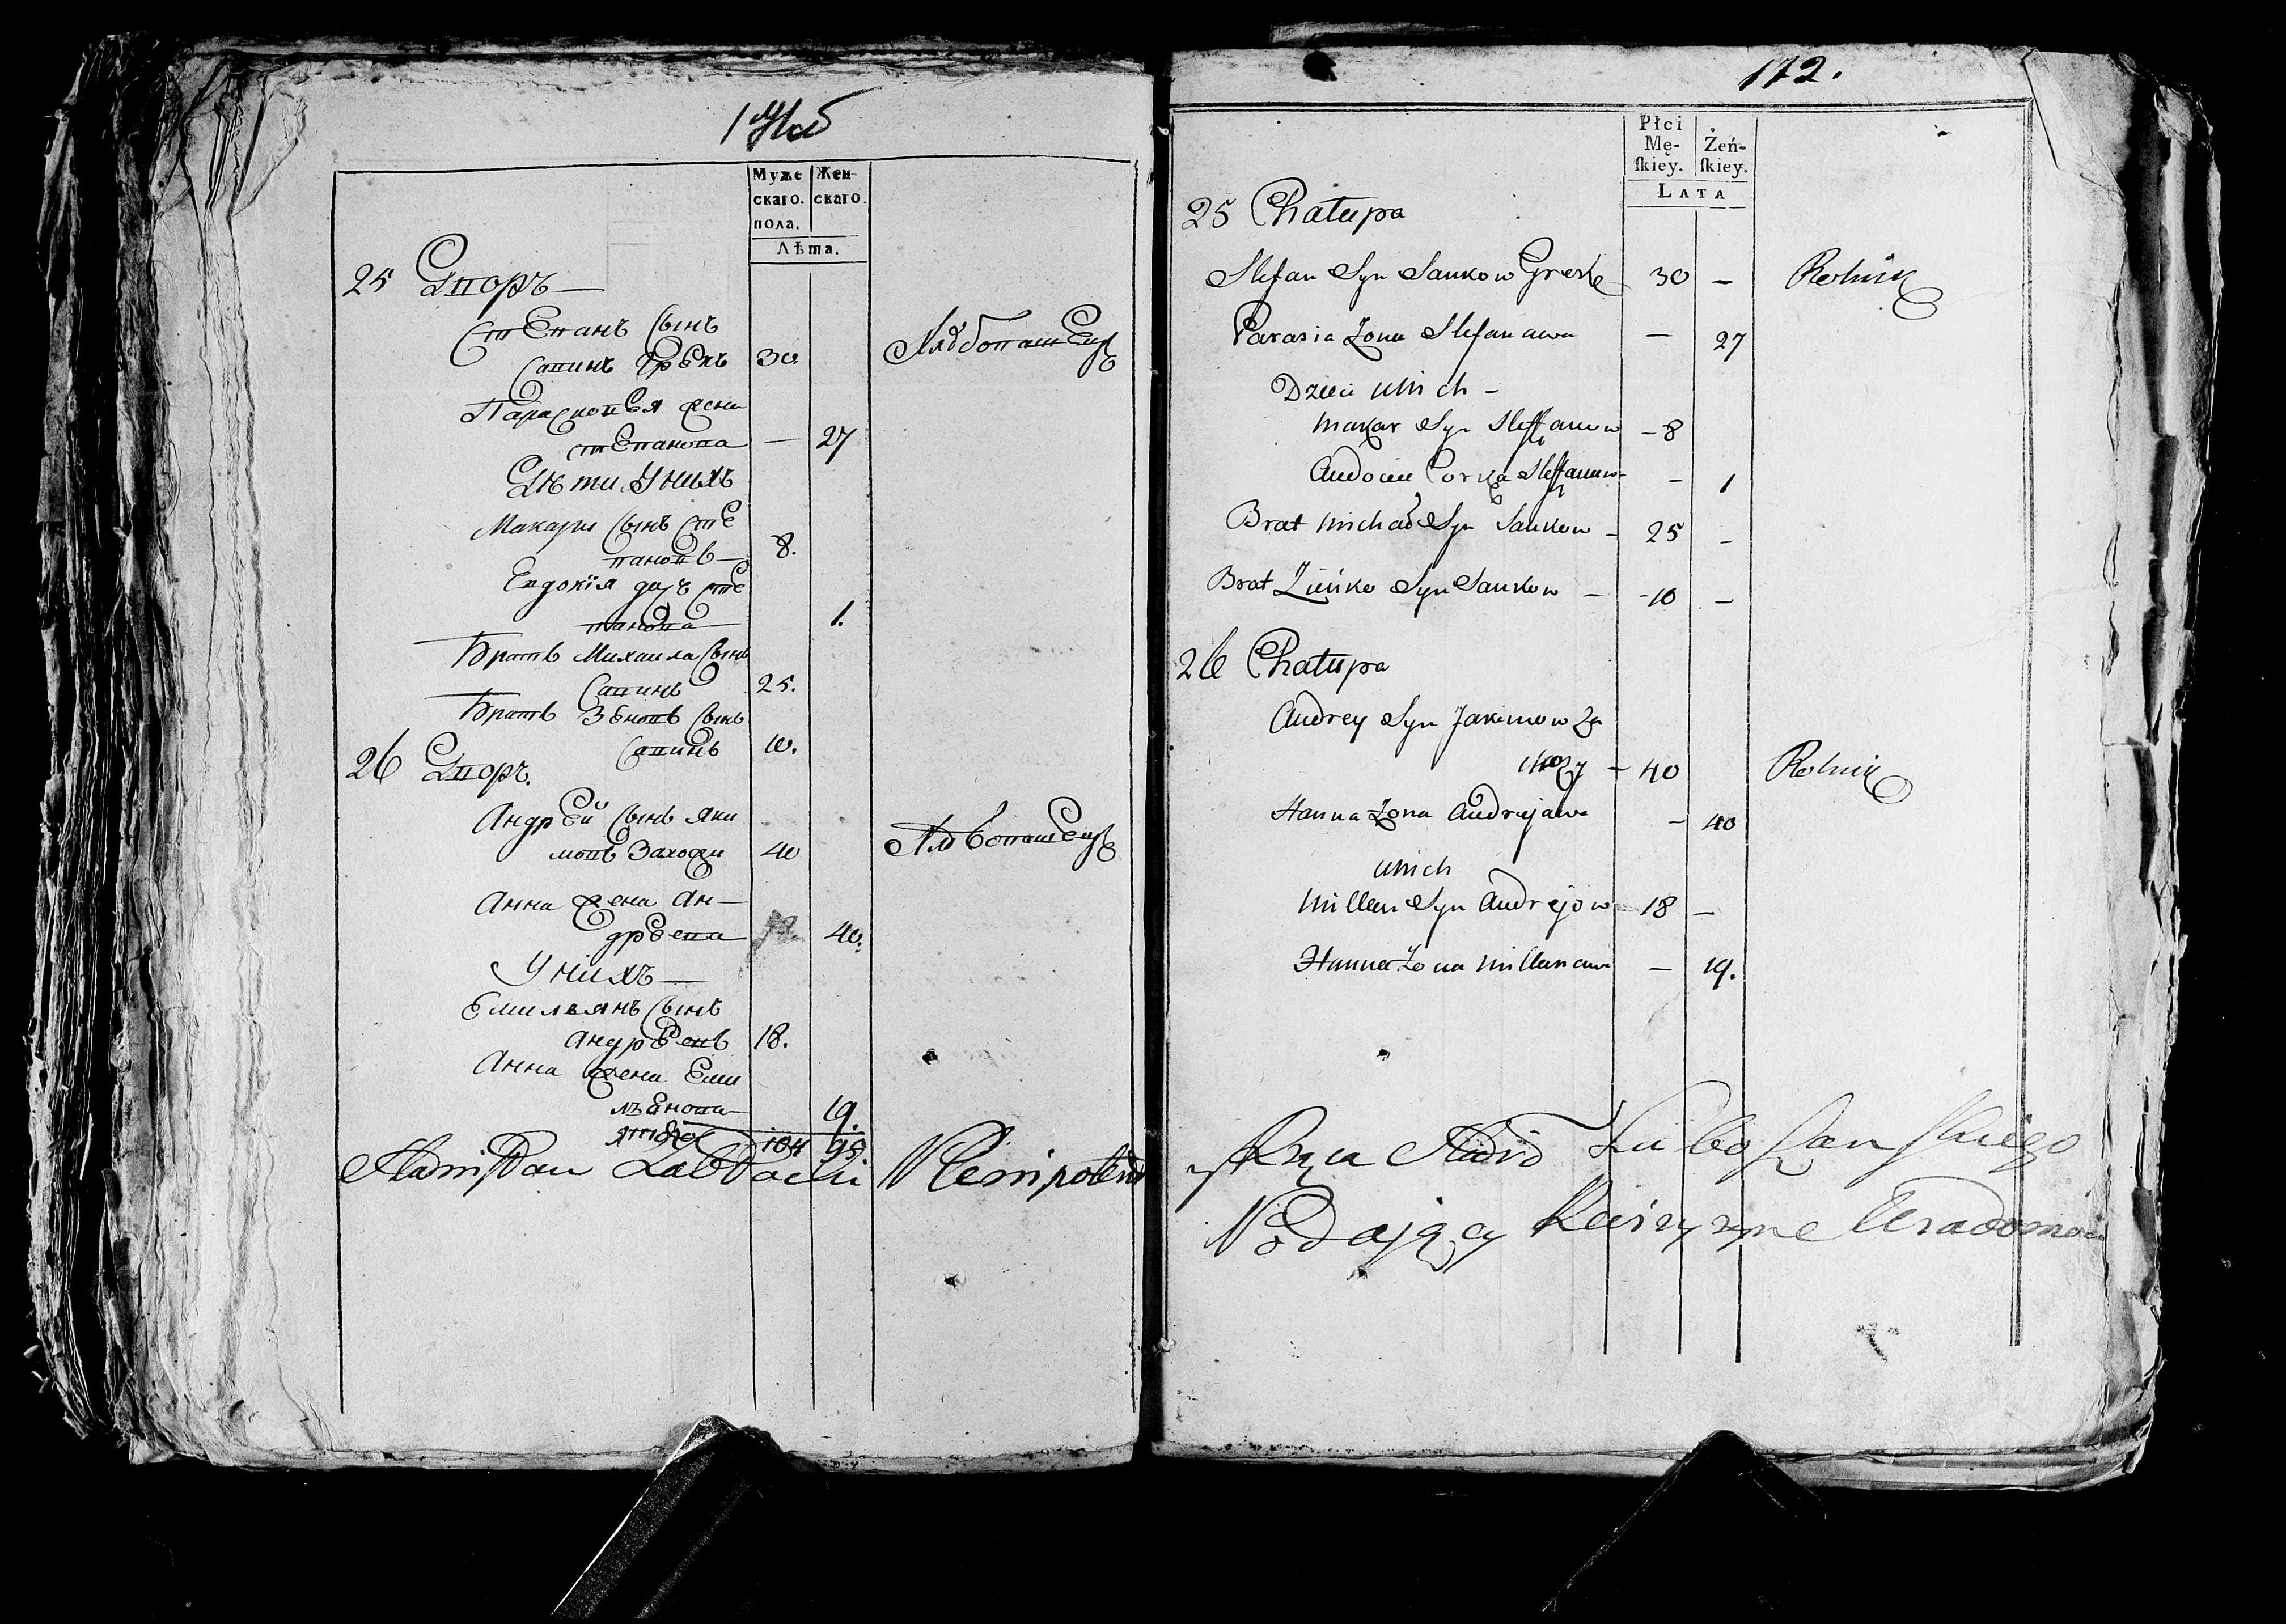 Муже
скаго.
пола.
Жен-
скаго.
Лѣта.
25 Дворъ —
Степанъ сынъ
Савинъ Грекъ 30
Хлѣбопашецъ
Парасковея жена
степанова — 27
Дѣти У нихъ
Макаръ сынъ Сте
пановъ — 8.
Евдокія дочь сте
панова — 1.
Братъ Михаила сынъ
Савинъ 25.
Братъ Зѣновъ сынъ
Савинъ 10.
26 Дворъ.
Андрей сынъ Яки
мовъ 40
Хлѣбопашецъ
Анна жена Ан—
дрѣева 40.
У нихъ —
Емильянъ сынъ
Андрѣевъ 18.
Анна жена Еми
льянова — 19.
104 95
172.
Płci
Mę-
ſkiey.
Żeń-
ſkiey.
LATA
25 Chałupa
Stefan Syn Saukow Grek 30 — Rolnik
Parasia Zona Stefanawa — 27
Dzieci unich —
Makar Syn Steffanow — 8
Audocia Corka Steffanow — 1
Brat Michał Syn Saukow — 25 —
Brat Zieńko Syn Saukow — 10 —
26 Chałupa
Andrey Syn Jakimow Za
— 40 Rolnik
Hanna Zona Andrejawa — 40
unich
Millan Syn Andrejow 18 —
Hanna Zona Millanawa — 19.
Plenipotent
Podający